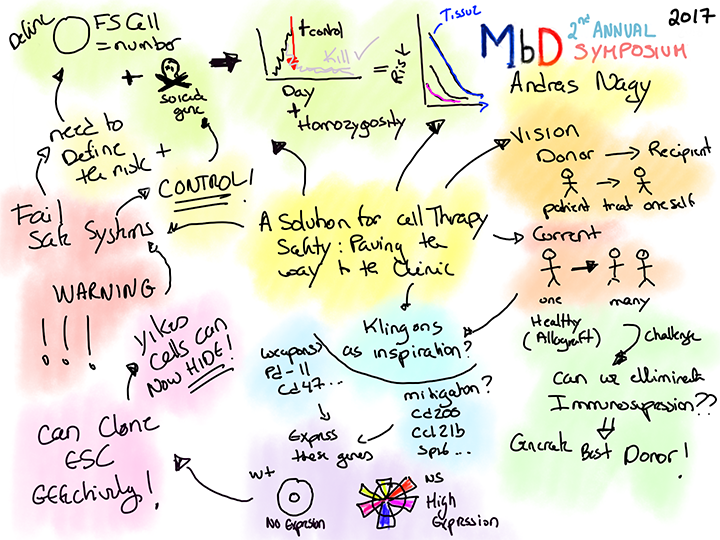 MbD 2nd ANNUAL SYMPOSIUM
2017
Andras Nagy
A Solution for cell Therapy
Safety: Paving the
way to the Clinic
Vision
Donor → Recipient
patient treat oneself
Current
one many
Healthy
(Allograft)
challenge
Can we elliminate
Immunosupression??
Generate Best Donor!
Klingons
as inspiration?
weapons?
Pd-l1
Cd47...
mitigation?
cd200
Ccl21b
Spi6...
Express
these genes
wt
No Expresion
NS
High
Expression
Can Clone
ESC
EEEctively!
yikes
Cells can
Now HIDE!
WARNING
!!!
Fail
Safe Systems
CONTROL!
need to
Define
the risk +
Define
FS Cell
= number
+
suicide
gene
+control
Kill ✓
Day
+
Homozygosity
=
Risk
Tissue